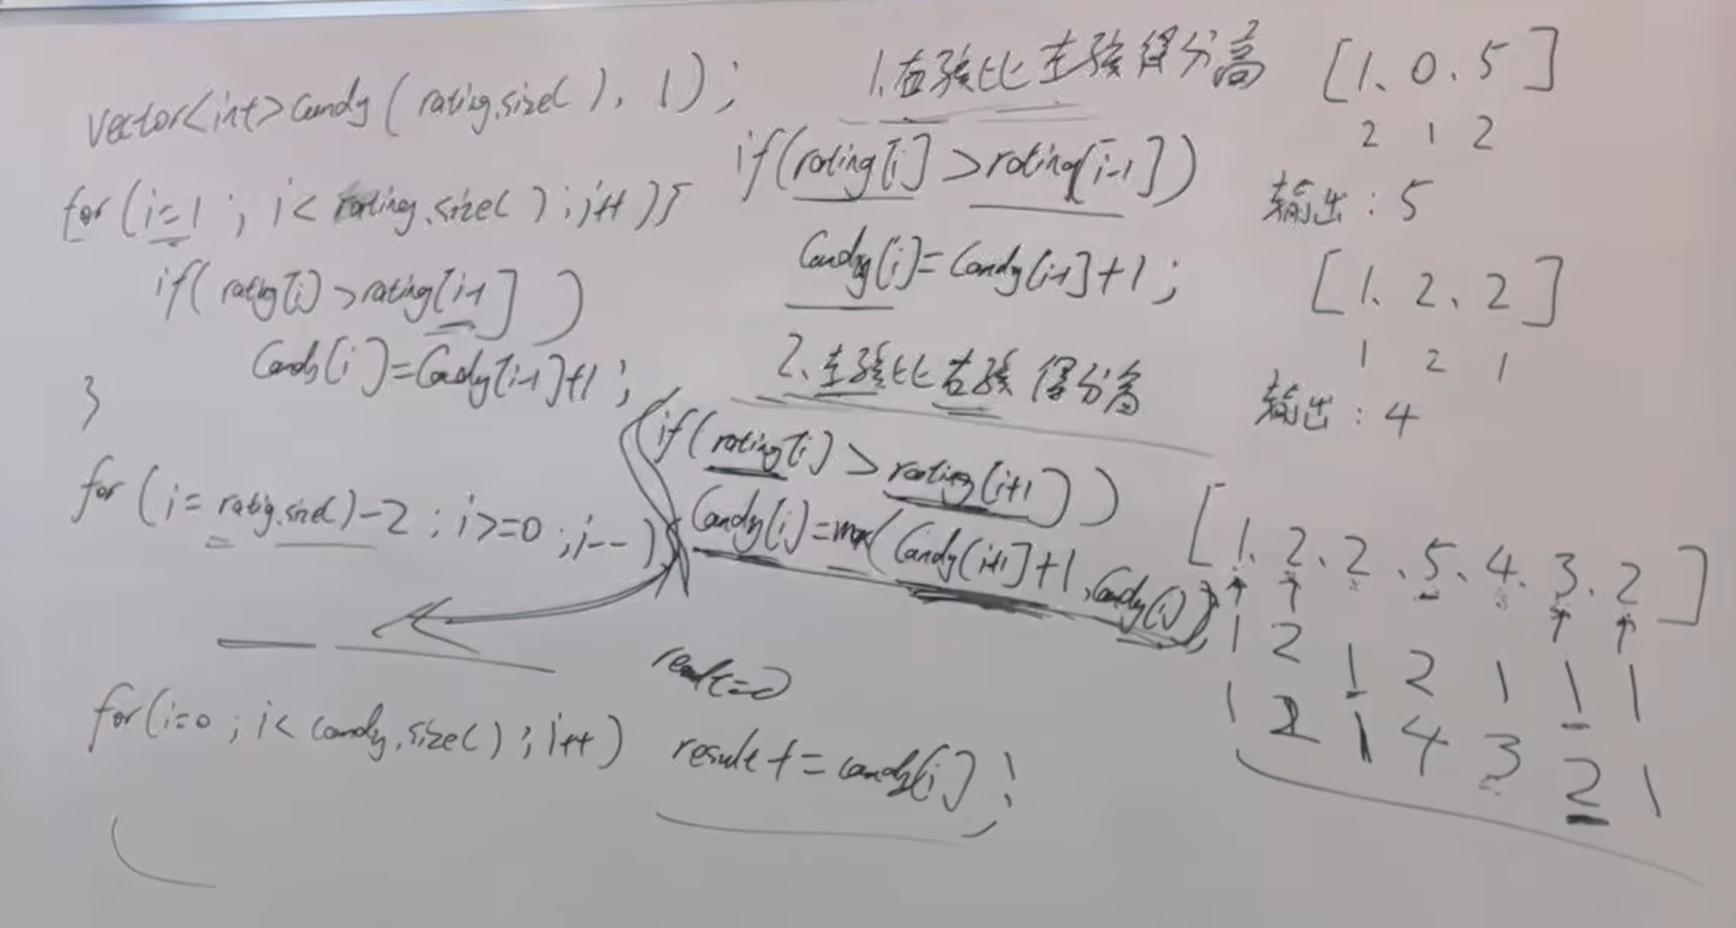 vector<int> candy(rating.size(), 1);
for(i=1; i<rating.size(); i++){
if(rating[i]>rating[i-1])
Candy[i]=Candy[i-1]+1;
}
for(i=rating.size()-2; i>=0; i--)
for(i=0; i<candy.size(); i++)
result=0
result+=candy[i];
1.右孩比左孩得分高
if(rating[i]>rating[i-1])
Candy[i]=Candy[i-1]+1;
2.左孩比右孩得分高
if(rating[i]>rating[i+1])
Candy[i]=max(Candy[i+1]+1, Candy[i])
[1、0、5]
2 1 2
输出:5
[1、2、2]
1 2 1
输出:4
[1、2、2、5、4、3、2]
1 2 1 2 1 1 1
1 2 1 4 3 2 1